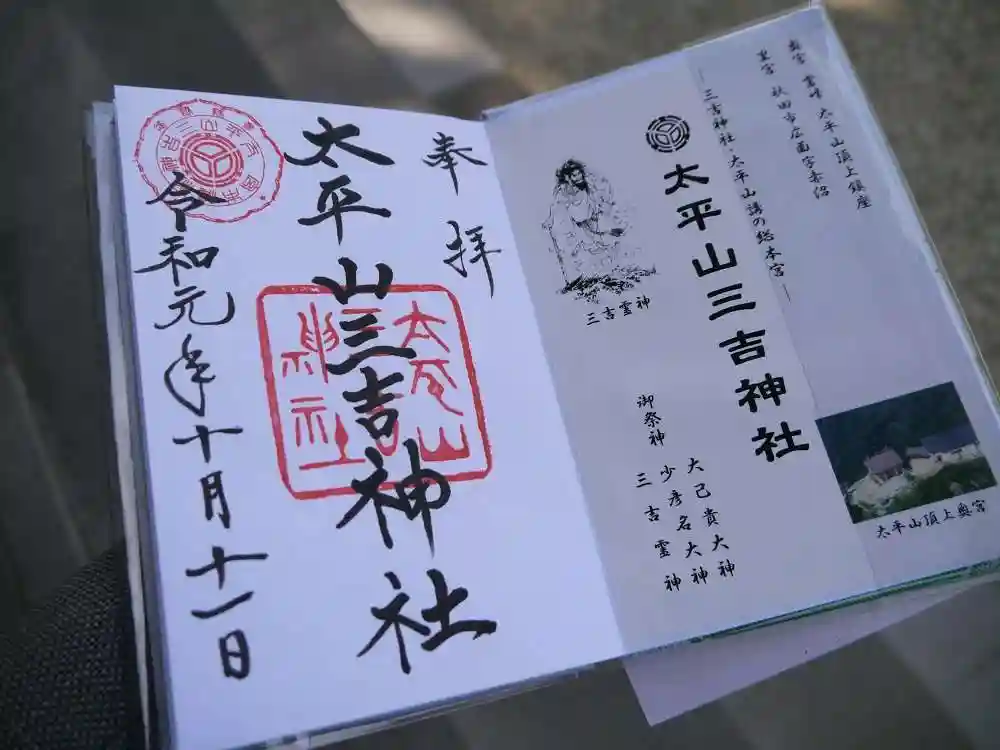 奉拝
太平山三吉神社
令和元年十月十一日
太平山
神社
奥宮 霊峰 太平山頂上鎮座
里宮 秋田市広面字赤沼
―三吉神社・太平山講の総本宮―
太平山三吉神社
三吉霊神
御祭神
大己貴大神
少彦名大神
三吉霊神
太平山頂上奥宮